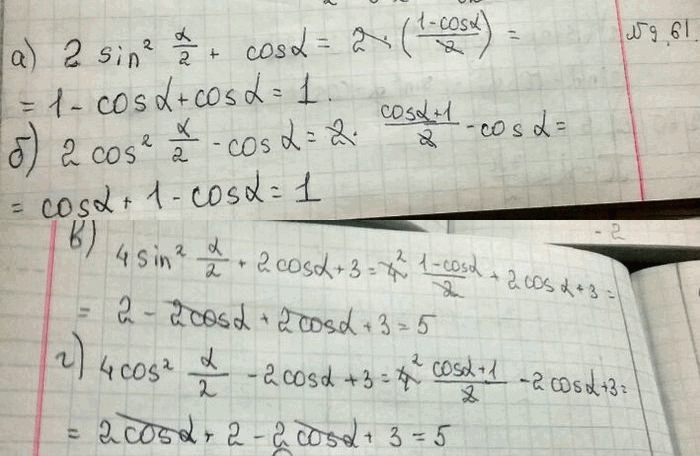 а) 2 sin² α/2 + cosα = 2·((1-cosα)/2) = №9.61.
= 1 - cosα + cosα = 1.
б) 2 cos² α/2 - cosα = 2· (cosα+1)/2 - cosα =
= cosα + 1 - cosα = 1
- 2
в) 4 sin² α/2 + 2cosα + 3 = 4² (1-cosα)/2 + 2cosα + 3 =
= 2 - 2cosα + 2cosα + 3 = 5
г) 4cos² α/2 - 2cosα + 3 = 4² (cosα+1)/2 - 2cosα + 3 =
= 2cosα + 2 - 2cosα + 3 = 5